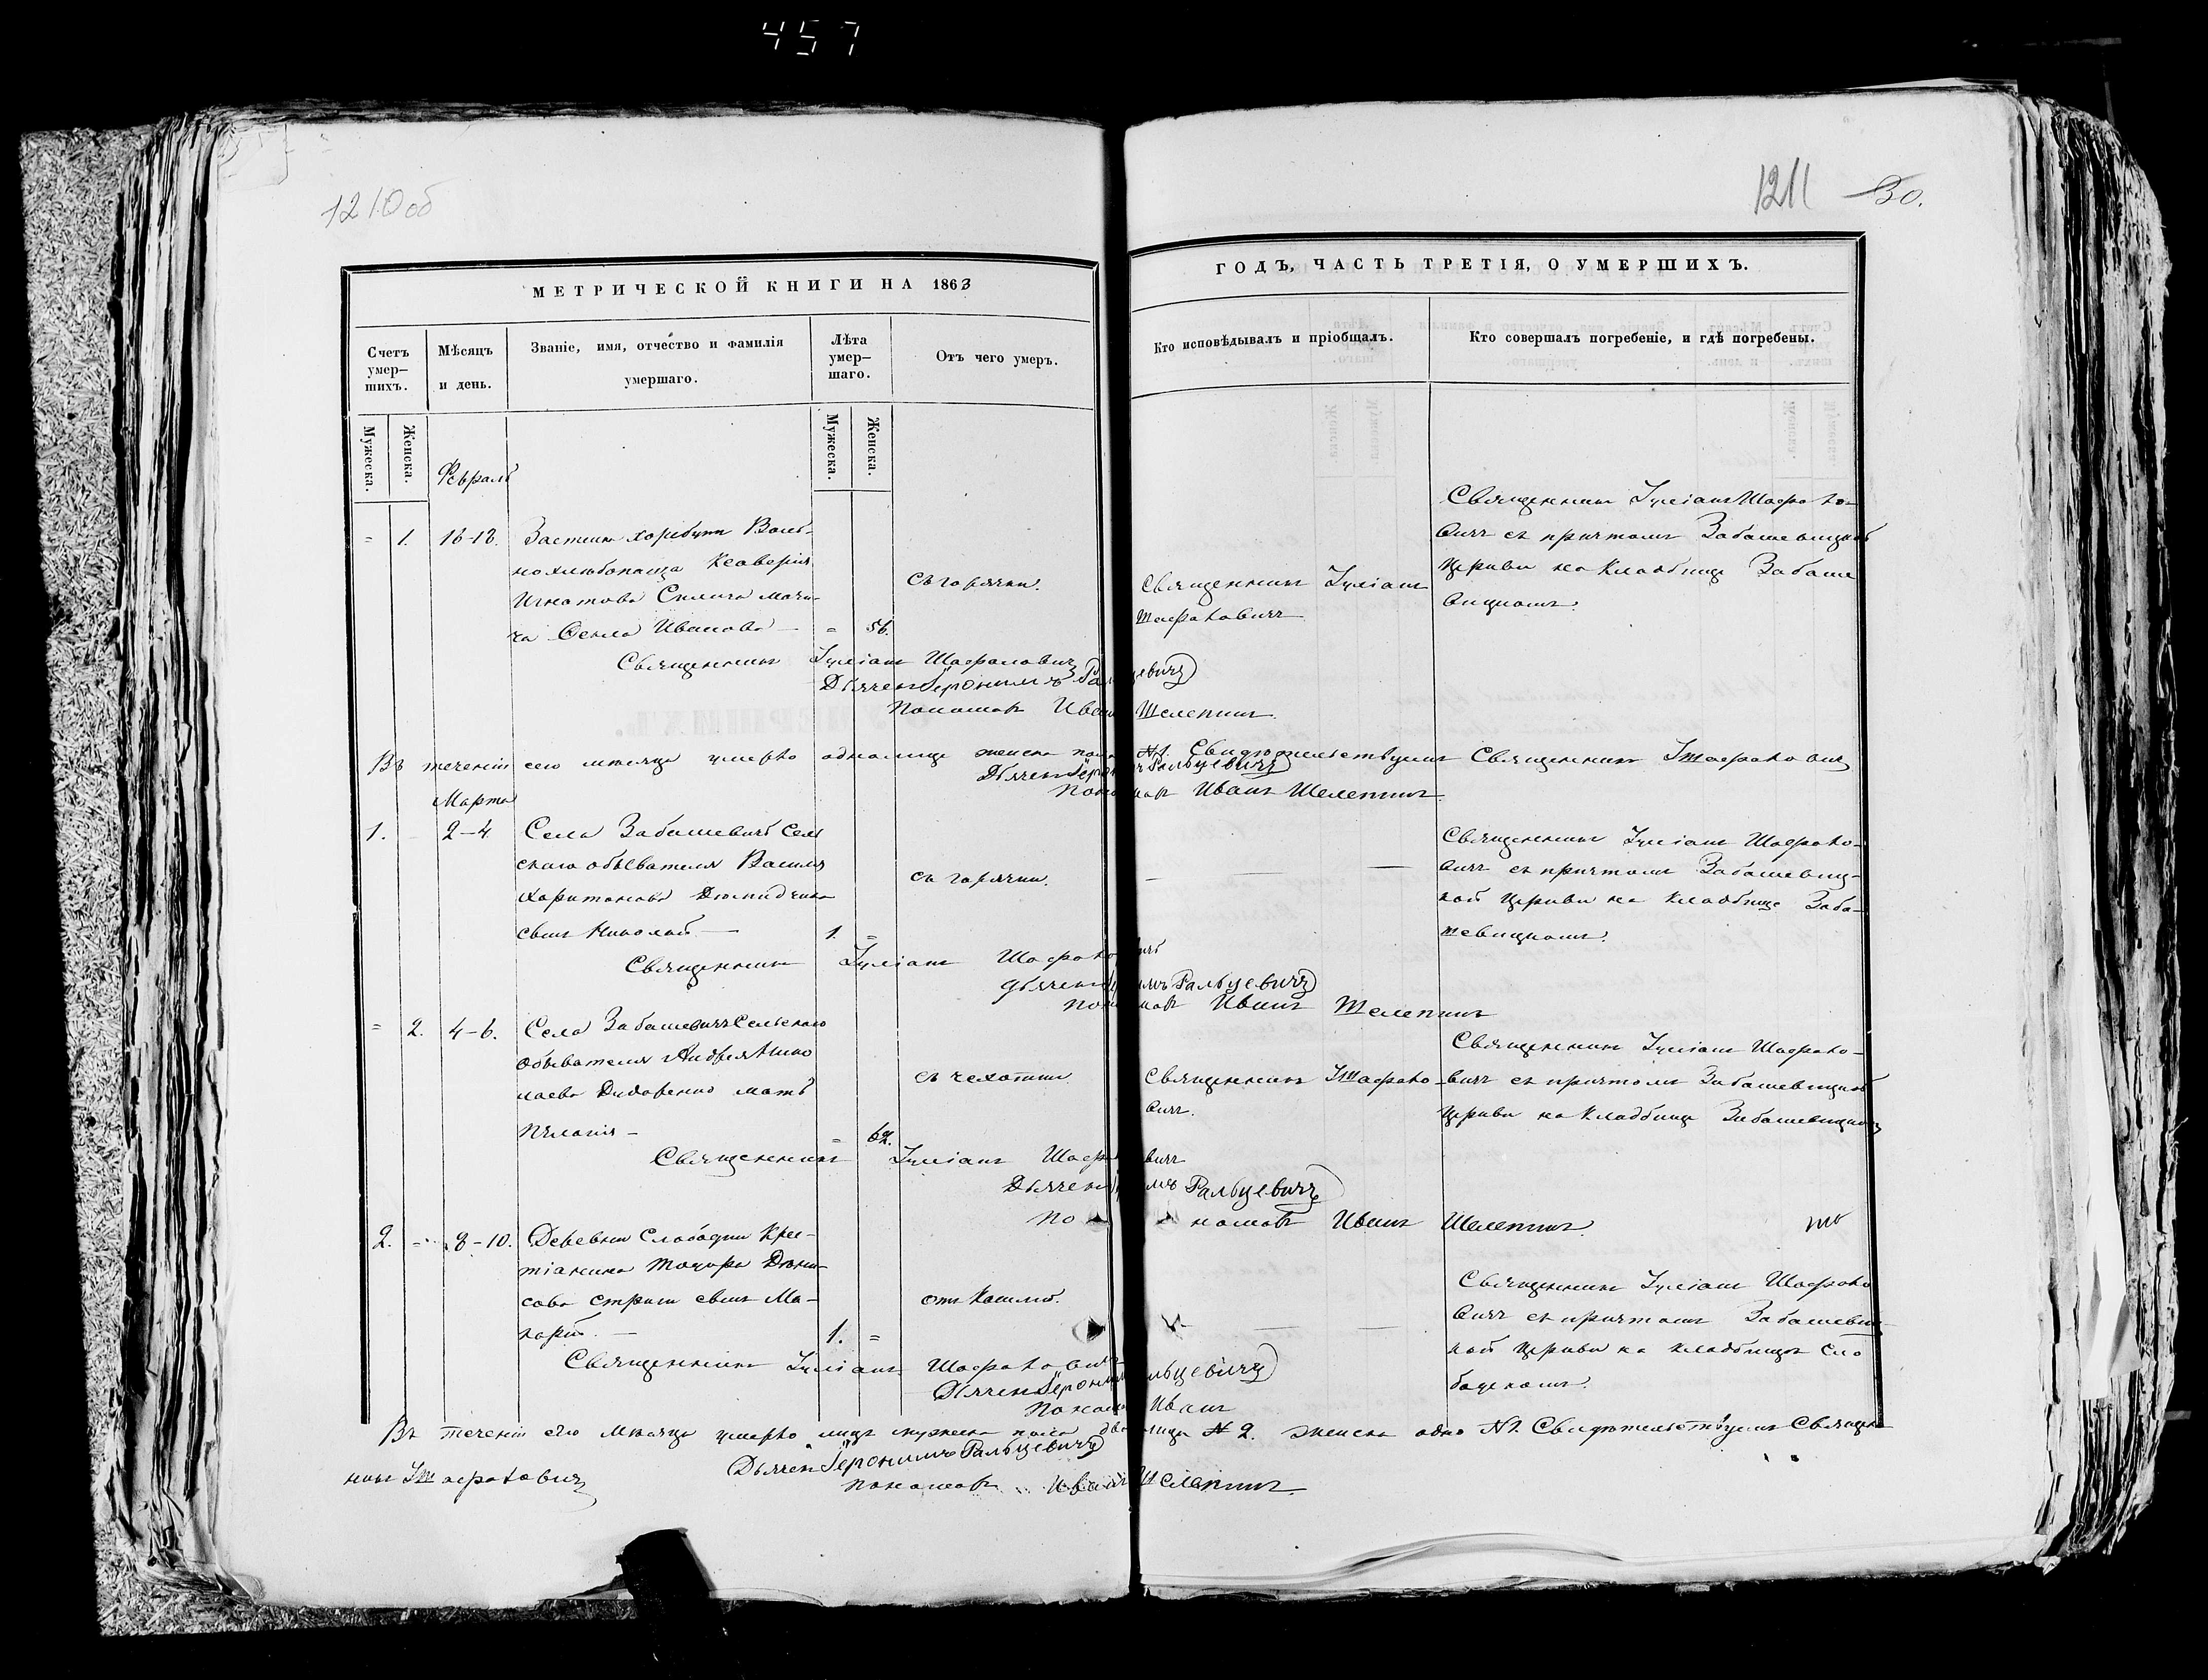 457
1210об
1211 30.
МЕТРИЧЕСКОЙ КНИГИ НА 1863
ГОДЪ, ЧАСТЬ ТРЕТІЯ, О УМЕРШИХЪ.
Счетъ умер–шихъ.
Мѣсяцъ и день.
Званіе, имя, отчество и фамилія умершаго.
Лѣта умер–шаго.
Отъ чего умеръ.
Кто исповѣдывалъ и пріобщалъ.
Кто совершалъ погребеніе, и гдѣ погребены.
Мужеска. Женска. Мужеска. Женска.
Февраль
= 1. 16-18.
Ксаверія
Игнатова
Иванова — = 56.
Съ горячки.
Священникъ Іуліанъ
Шафраковичъ
Священникъ Іуліанъ Шафрако-
вичъ съ причтомъ Забашевицкой
Церкви на Кладбище Забаше
вицкомъ.
Священникъ Іуліанъ Шафраковичъ
Дьячекъ Іеронимъ Ральцевичъ
Пономарь Иванъ Шелепинъ.
Въ теченіи сего мѣсяца умерло одно лице женска пола №1. Свидѣтельствуемъ Священникъ І Шафраковичъ
Дьячекъ Іеронимъ Ральцевичъ
Пономарь Иванъ Шелепинъ.
Марта
1. — 2–4.
Села Забашевичъ Сель
скаго обывателя Василія
Харитонова
сынъ Николай — 1. =
съ горячки.
— — —
Священникъ Іуліанъ Шафрако-
вичъ съ причтомъ Забашевиц-
кой Церкви на Кладбище Заба-
шевицкомъ.
Священникъ Іуліанъ Шафраковичъ
Дьячекъ Іеронимъ Ральцевичъ
Пономарь Иванъ Шелепинъ
= 2. 4–6.
Села Забашевичъ Сельскаго
обывателя Андрея Нико
лаева мать
Пелагія – = 62.
съ чахотки
Священникъ І Шафрако-
вичъ.
Священникъ Іуліанъ Шафрако-
вичъ съ причтомъ Забашевицкой
Церкви на Кладбище Забашевицкомъ
Священникъ Іуліанъ Шафраковичъ
Дьячекъ Іеронимъ Ральцевичъ
Пономарь Иванъ Шелепинъ.
2. = 8–10.
Деревни Слободки Крес-
тіанина
сынъ Ма-
карій. — 1. =
отъ Кашля.
— —
Священникъ Іуліанъ Шафрако
вичъ съ причтомъ Забашевиц
кой Церкви на кладбище Сло
бодскомъ.
Священникъ Іуліанъ Шафраковичъ
Дьячекъ Іеронимъ Ральцевичъ
Пономарь Иванъ
Въ теченіи сего мѣсяца умерло лицъ мужеска пола два лица № 2. женска одно №1. Свидѣтельствуемъ Священ
никъ І Шафраковичъ
Дьячекъ Іеронимъ Ральцевичъ
Пономарь Иванъ Шелепинъ.